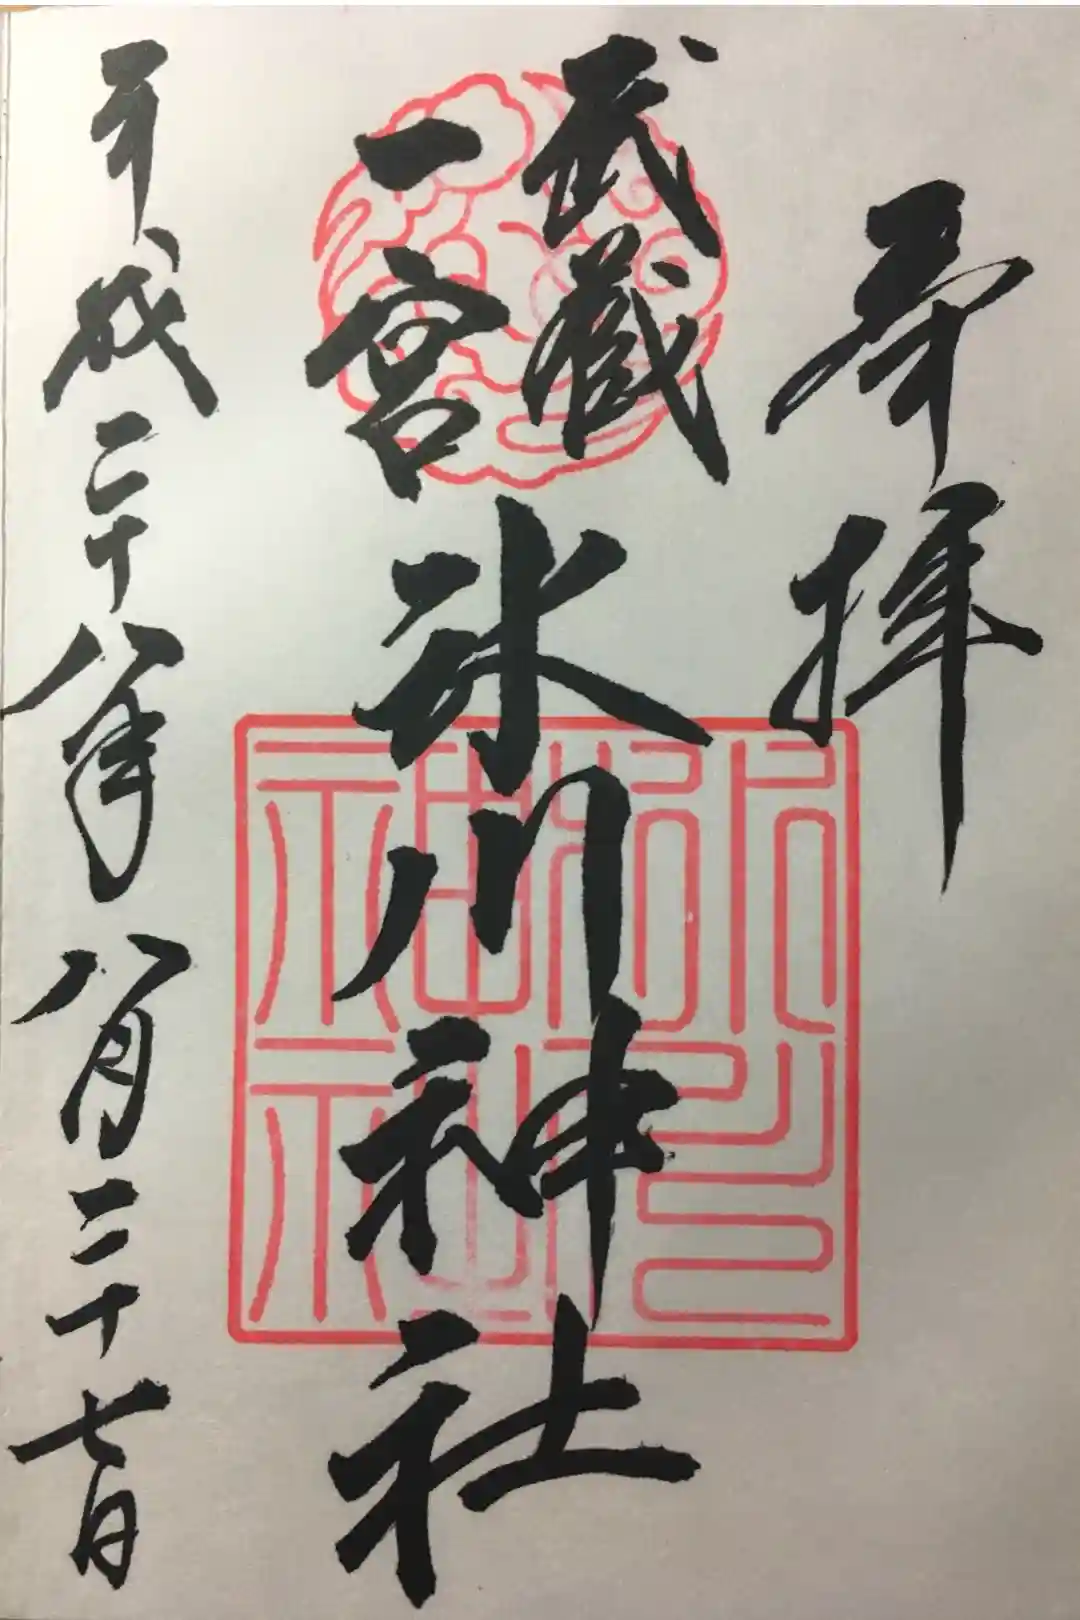 奉拝
武蔵
一宮
氷川神社
平成二十八年八月二十七日
氷川
神社